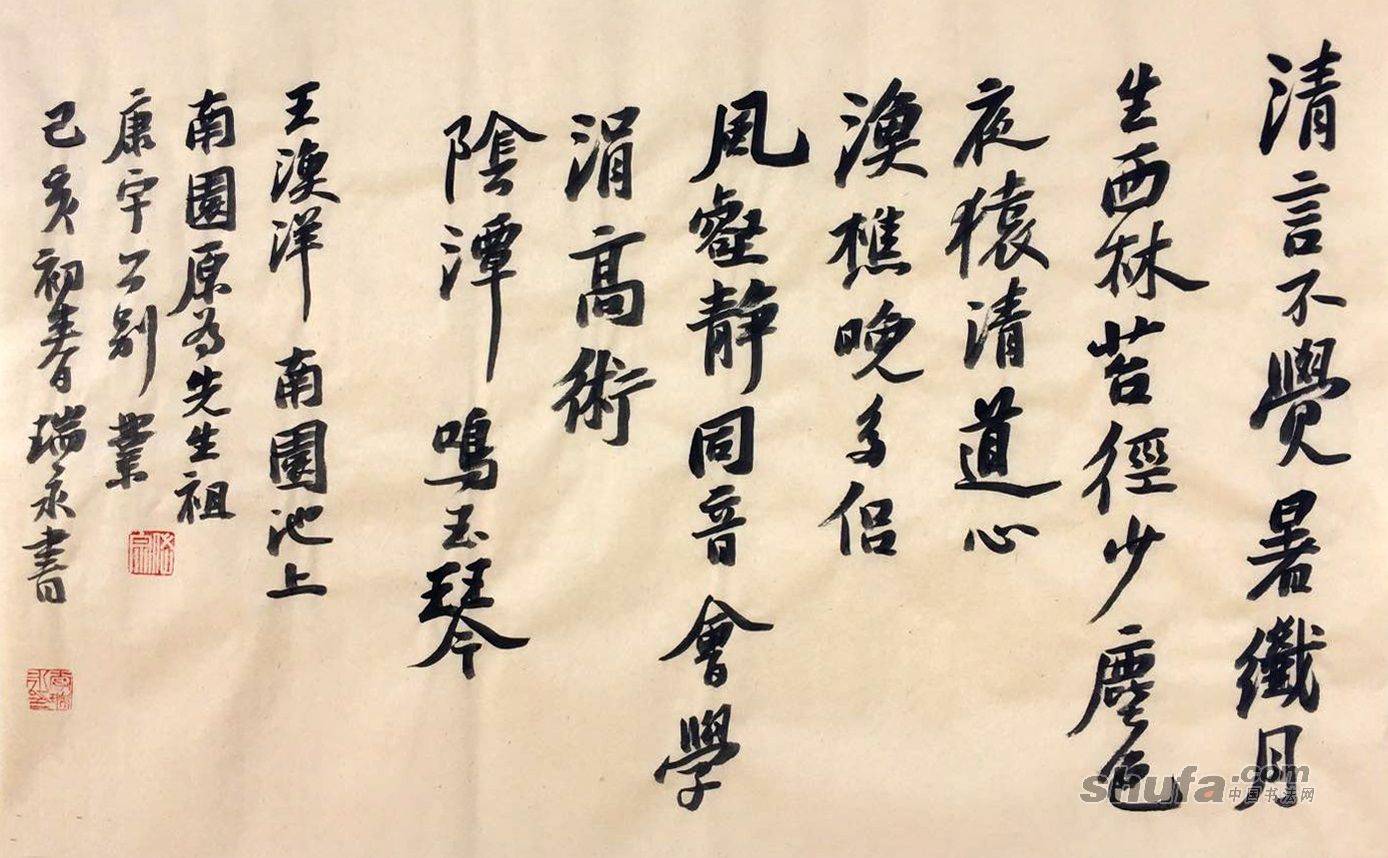 清言不覺暑纖月
生西林苔徑少塵色
夜猿清道心
漁樵晚多侶
風壑靜同音會學
涓高術
陰潭鳴玉琴
王漁洋 南園池上
南園原為先生祖
康宇公別業
己亥初春瑞永書
shufa.com
中国书法网